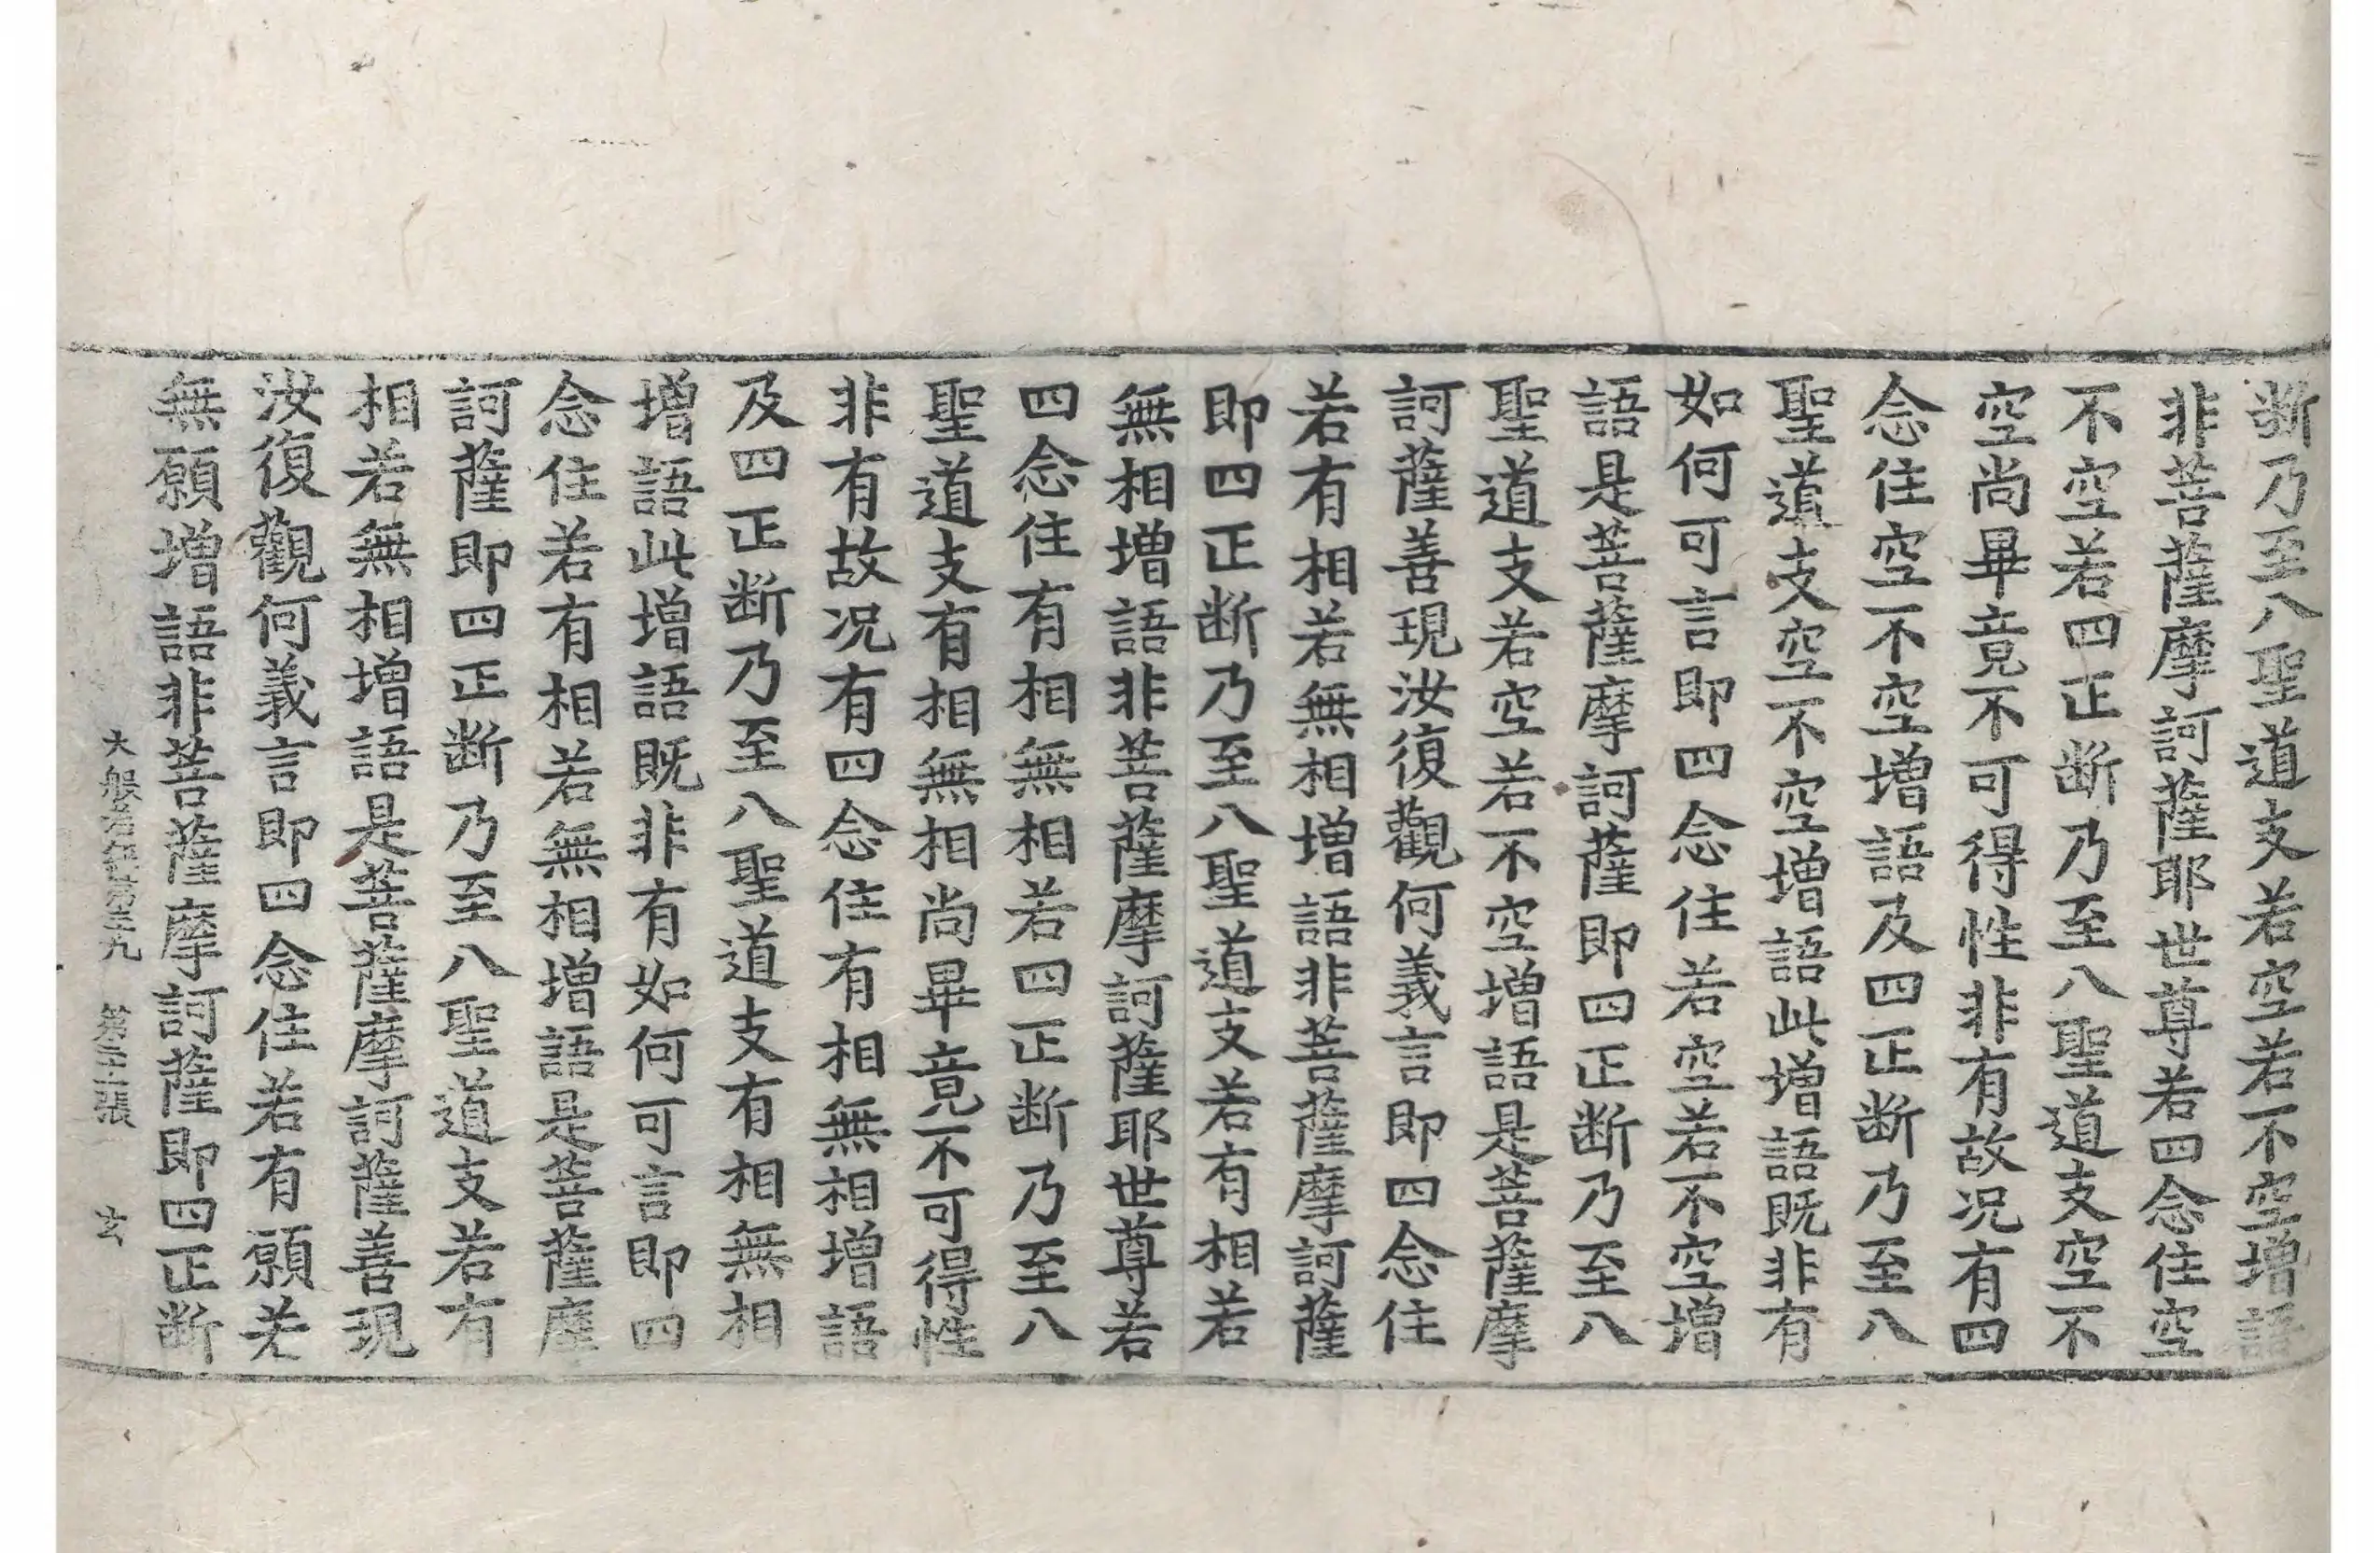 断乃至八聖道支若空若不空增語
非菩薩摩訶薩耶世尊若四念住空
不空若四正断乃至八聖道支空不
空尚畢竟不可得性非有故况有四
念住空不空增語及四正断乃至八
聖道支空不空增語此增語既非有
如何可言即四念住若空若不空增
語是菩薩摩訶薩即四正断乃至八
聖道支若空若不空增語是菩薩摩
訶薩善現汝復觀何義言即四念住
若有相若無相增語非菩薩摩訶薩
即四正断乃至八聖道支若有相若
無相增語非菩薩摩訶薩耶世尊若
四念住有相無相若四正断乃至八
聖道支有相無相尚畢竟不可得性
非有故况有四念住有相無相增語
及四正断乃至八聖道支有相無相
增語此增語既非有如何可言即四
念住若有相若無相增語是菩薩摩
訶薩即四正断乃至八聖道支若有
相若無相增語是菩薩摩訶薩善現
汝復觀何義言即四念住若有願若
無願增語非菩薩摩訶薩即四正断
大般若經第三九 第二張 玄